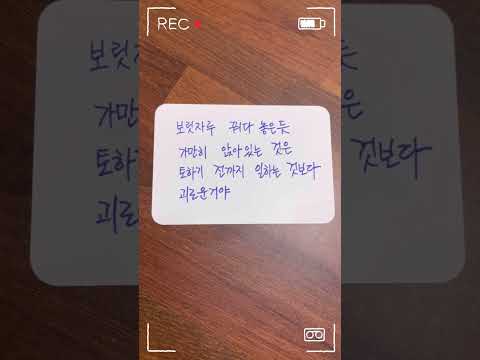 REC
보릿자루 꿔다 놓은듯
가만히 앉아있는 것은
토하기 전까지 일하는 것보다
괴로운거야